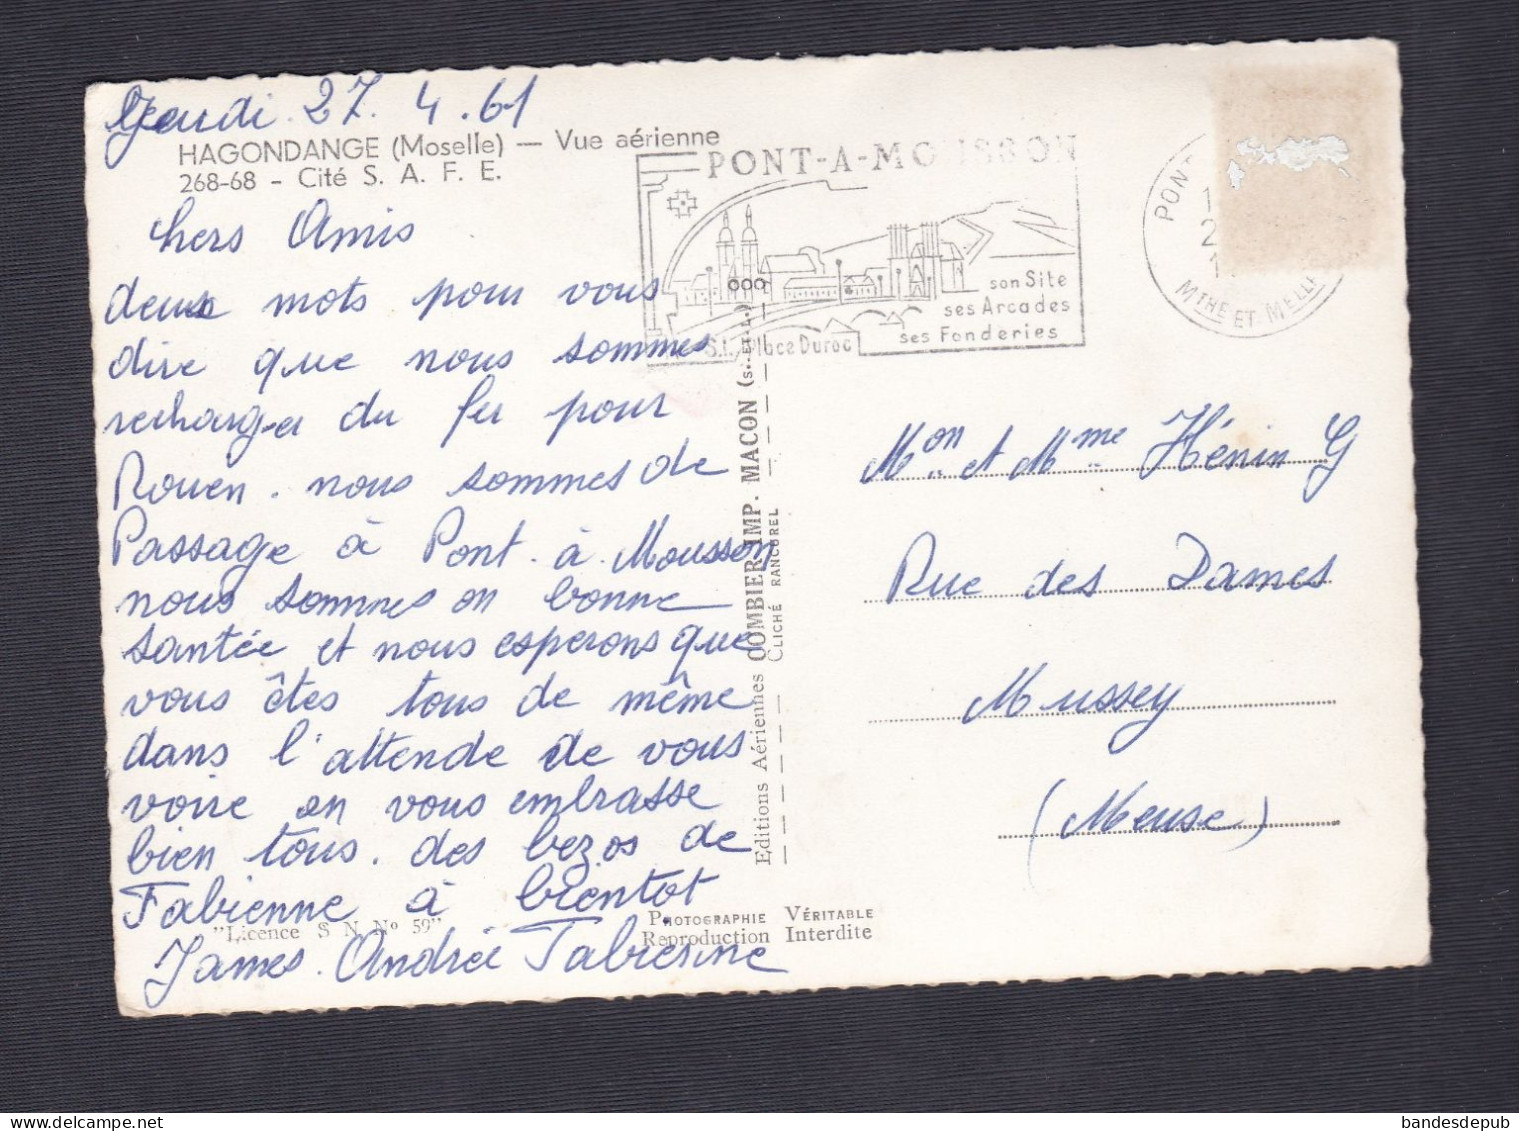 Jeudi 27. 4. 61
HAGONDANGE (Moselle) — Vue aérienne
268-68 - Cité S. A. F. E.
Chers Amis
deux mots pour vous
dire que nous sommes
recharger du fer pour
Rouen. nous sommes de
Passage à Pont. à. Mousson
nous sommes en bonne
santée et nous esperons que
vous êtes tous de même
dans l'attende de vous
voire on vous embrasse
bien tous. des bezos de
Fabienne à bientot
"Licence S N No 59"
James. Andrée Fabienne
PONT-A-MOUSSON
son Site
ses Arcades
ses Fonderies
S.I. Place Duroc
PONT
MTHE ET MELLE
Editions Aériennes COMBIER IMP. MACON
CLICHÉ RANCUREL
PHOTOGRAPHIE VÉRITABLE
Reproduction Interdite
Mon et Mme Hénin G
Rue des Dames
Mussey
(Meuse)
bandesdepub